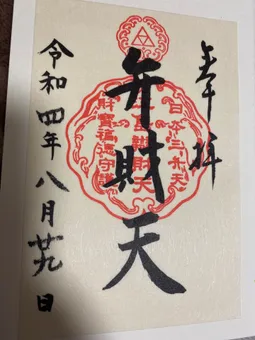 奉拝
日本三弁天
弁財天
財寶福徳守護
令和四年八月廿九日